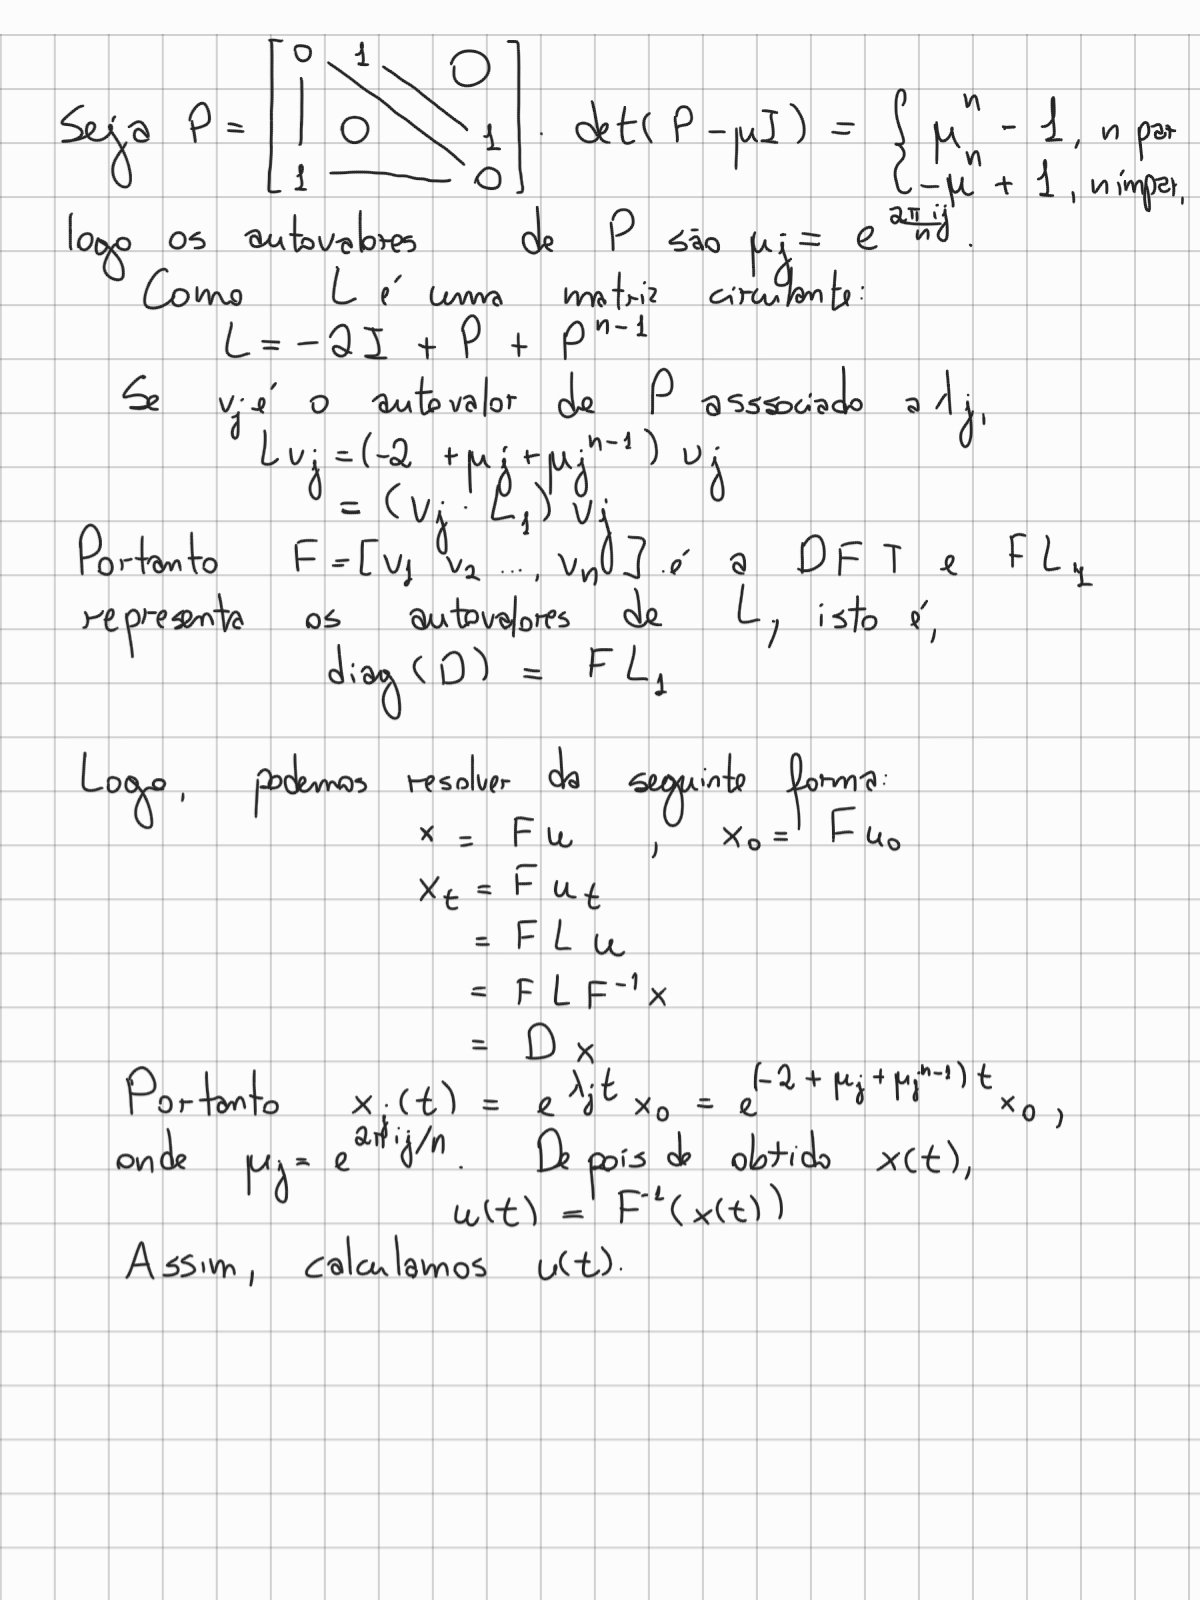 Seja P = [ 0 1 0 | 0 1 | 1 — 0 ] . det(P - μI) = { μⁿ - 1, n par
{ -μⁿ + 1, n impar,
logo os autovalores de P são μj = e^(2πij/n).
Como L é uma matriz circulante:
L = -2I + P + Pⁿ⁻¹
Se vj é o autovalor de P asssociado a λj,
Lvj = (-2 + μj + μjⁿ⁻¹) vj
= (vj · L₁) vj
Portanto F = [v₁ v₂ ..., vn] é a DFT e FL₁
representa os autovalores de L, isto é,
diag(D) = FL₁
Logo, podemos resolver da seguinte forma:
x = Fu , x₀ = Fu₀
xt = Fut
= FLu
= FLF⁻¹x
= Dx
Portanto xj(t) = e^(λjt) x₀ = e^((-2 + μj + μjⁿ⁻¹)t) x₀,
onde μj = e^(2πij/n). Depois de obtido x(t),
u(t) = F⁻¹(x(t))
Assim, calculamos u(t).